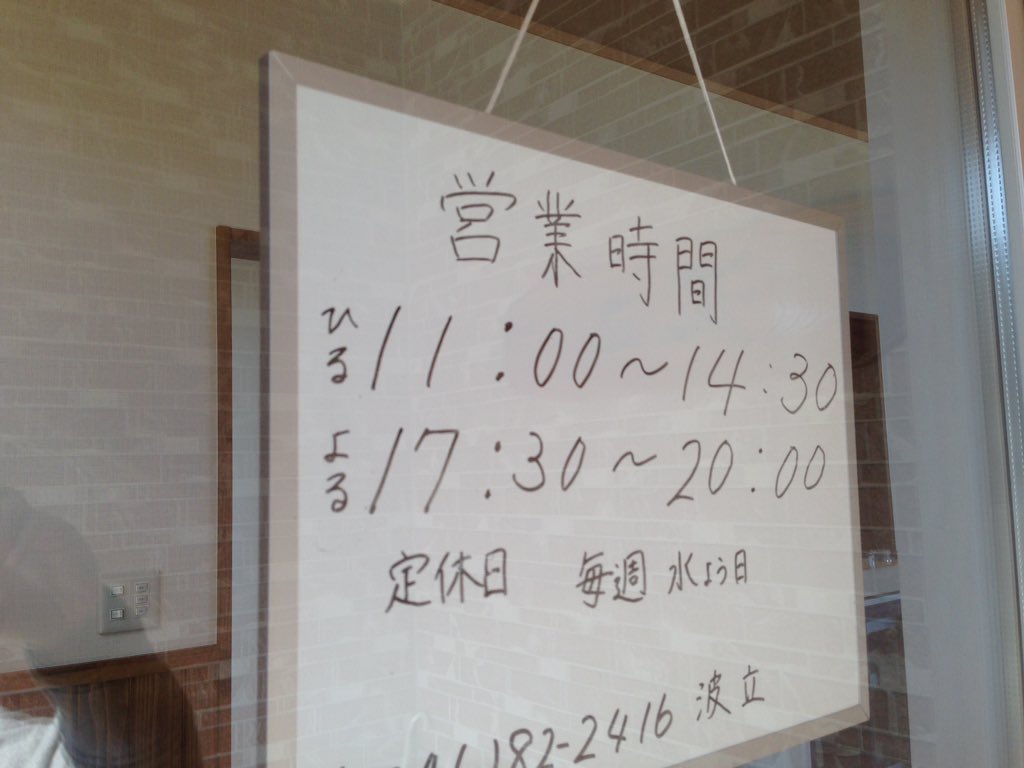 営業時間
ひる 11:00～14:30
よる 17:30～20:00
定休日 毎週 水よう日
182-2416 波立